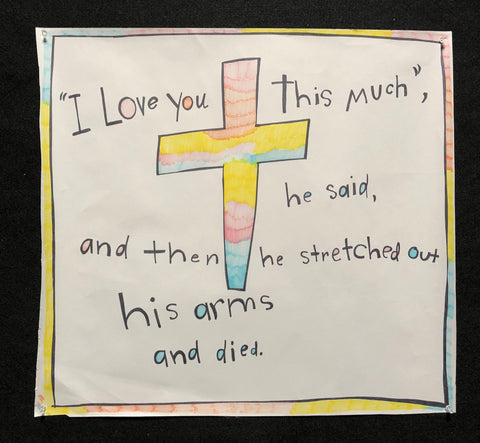 "I Love you This Much",
he said,
and then he stretched out
his arms
and died.